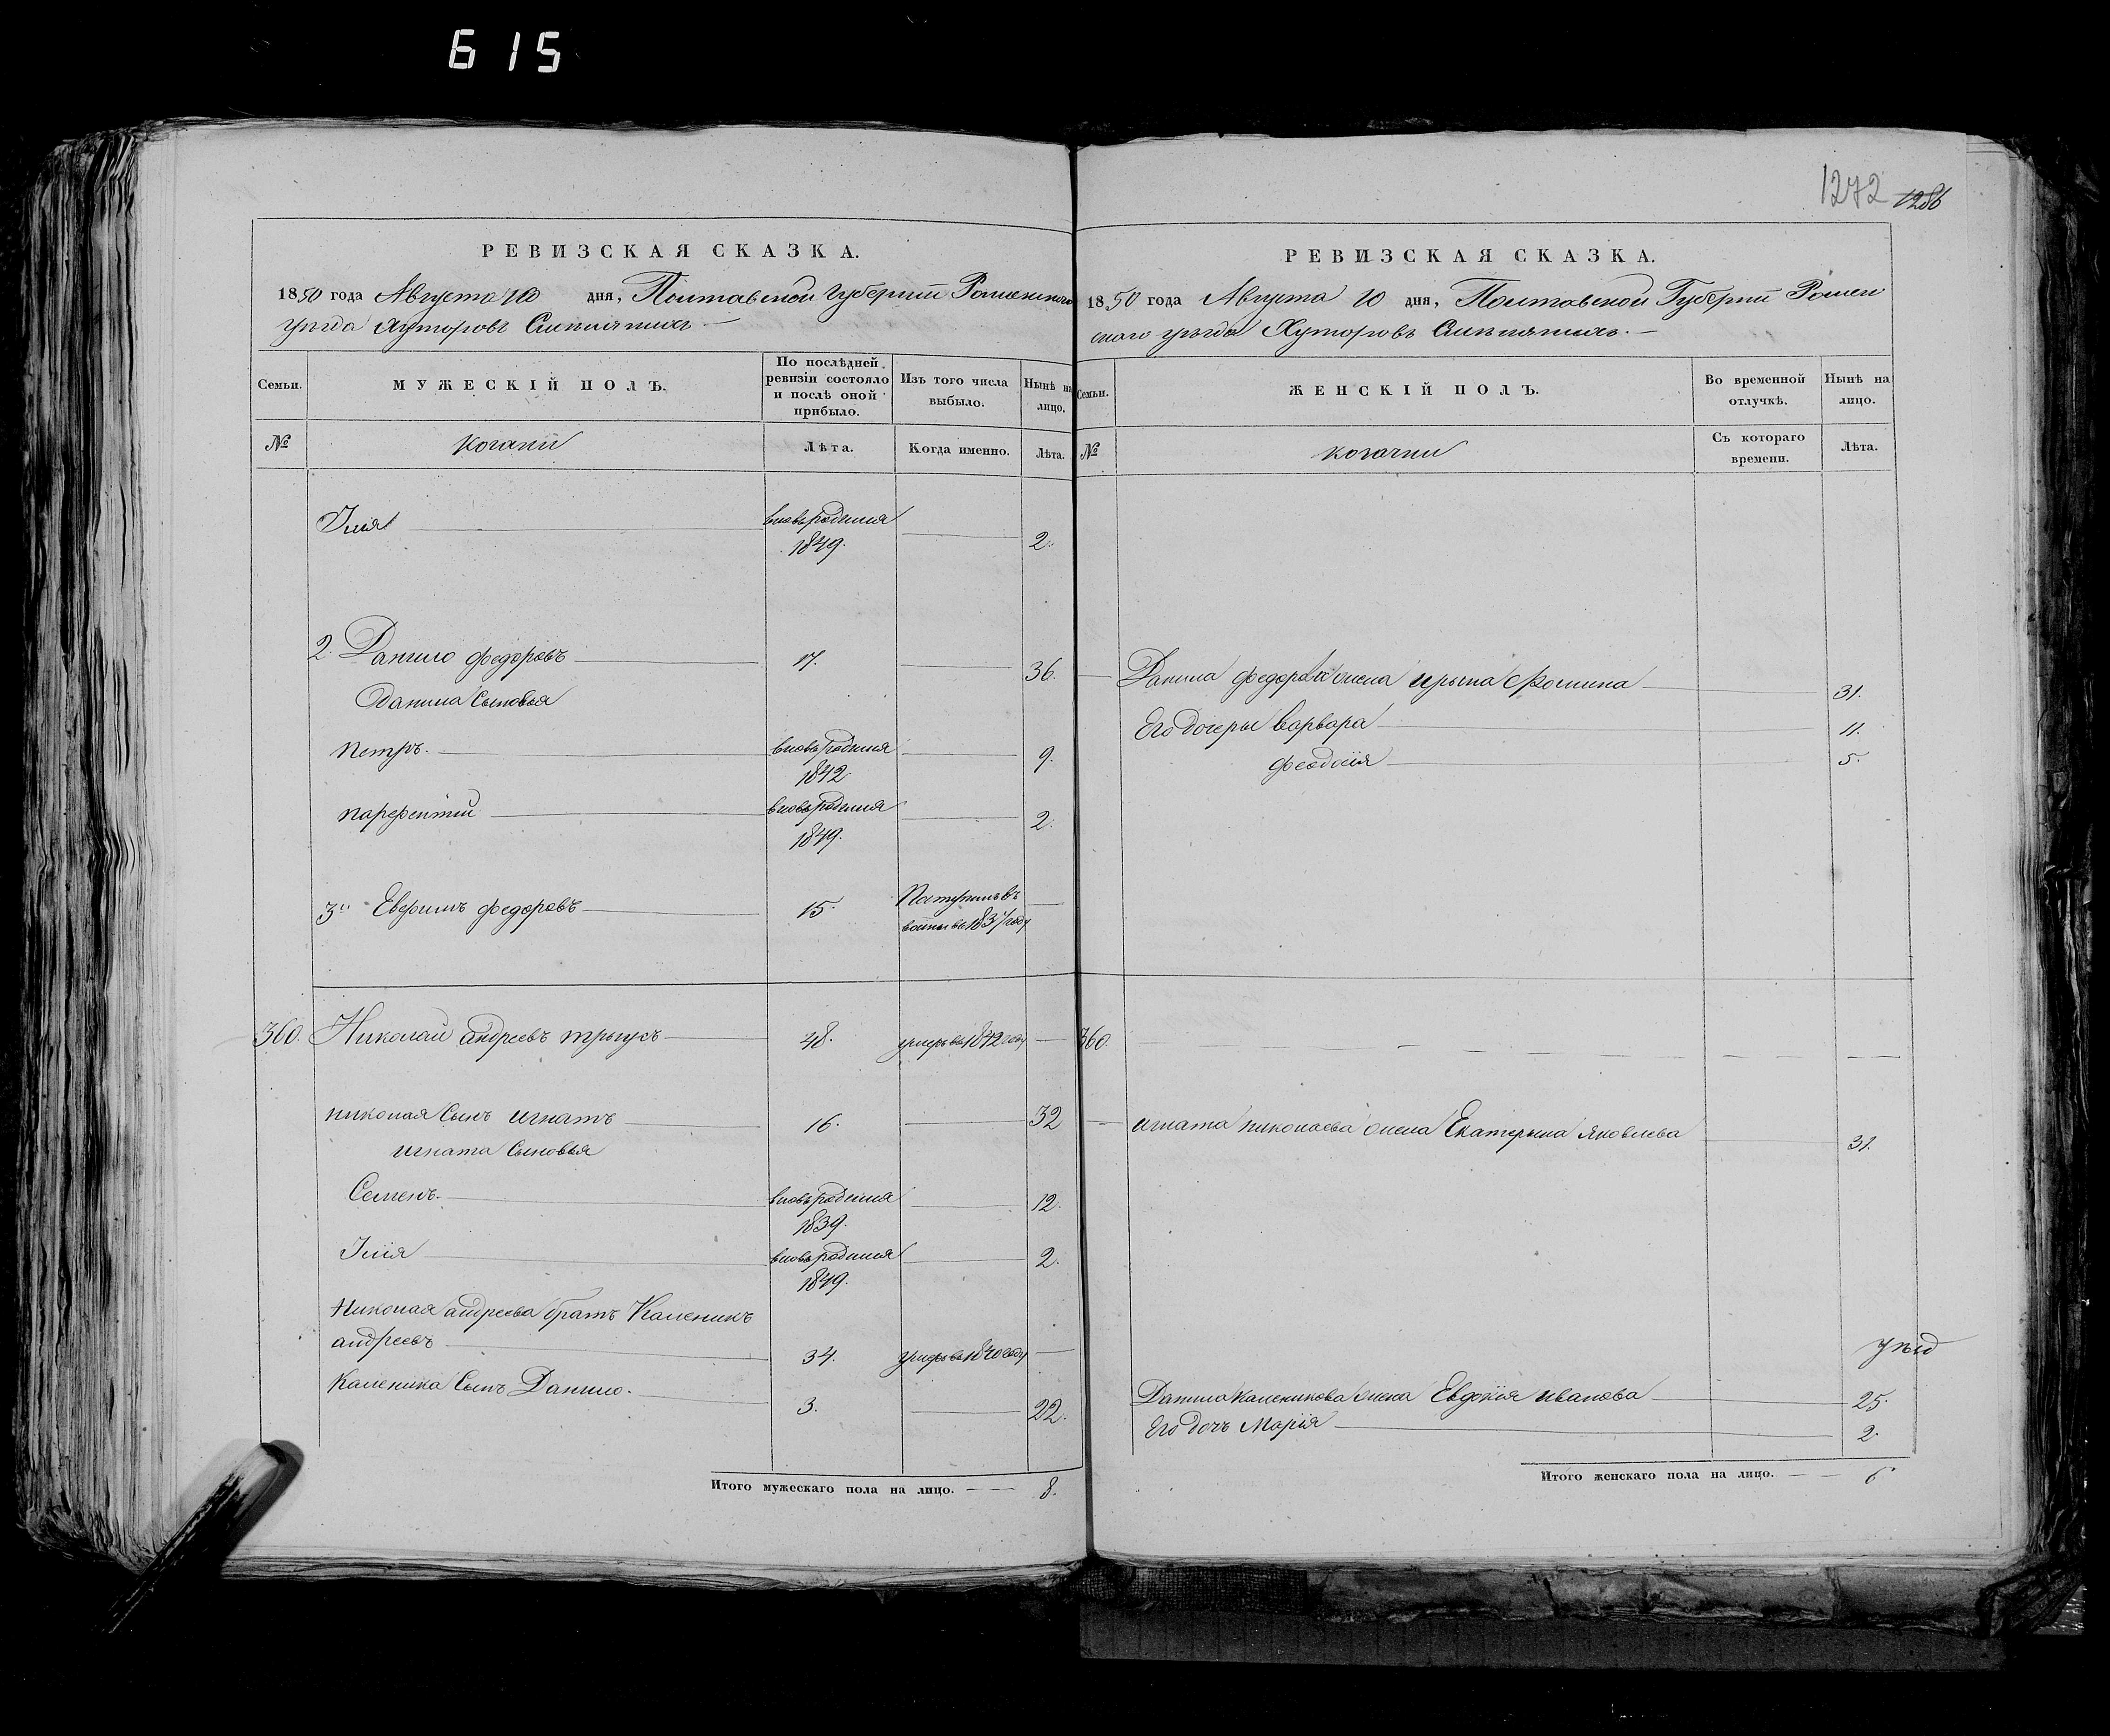 615
1272 1286
РЕВИЗСКАЯ СКАЗКА.
1850 года Августа 10 дня, Полтавской Губерніи Роменского
уезда Хуторовъ
Семьи. МУЖЕСКІЙ ПОЛЪ. По послѣдней ревизіи состояло и послѣ оной прибыло. Изъ того числа выбыло. Нынѣ на лицо.
№ Козаки Лѣта. Когда именно. Лѣта.
Илія вновь рожденія 1849. 2.
2. Данило Федоровъ 17. 36.
Данила Сыновья
Петръ. вновь рожденія 1842 9.
Парфентій вновь рожденія 1849. 2.
3й Евфимъ Федоровъ 15. Поступилъ въ 1837 году
360. Николай андреевъ Трыусъ 48. умеръ въ 1842 году
Николая Сынъ Игнатъ 16. 32
Игната Сыновья
Семенъ. вновь рожденія 1839. 12.
Илія вновь рожденія 1849. 2.
Николая андреева братъ Каленикъ
андреевъ 34. умеръ въ 1840 году
Каленика Сынъ Данило. 3. 22.
Итого мужескаго пола на лицо. 8.
РЕВИЗСКАЯ СКАЗКА.
1850 года Августа 10 дня, Полтавской Губерніи Ромен
ского уезда Хуторовъ
Семьи. ЖЕНСКІЙ ПОЛЪ. Во временной отлучкѣ. Нынѣ на лицо.
№ козачки Съ котораго времени. Лѣта.
Данила Федорова жена Ирына Фомина 31.
Его дочеры Варвара 11.
Феодосія 5.
360.
Игната Николаева жена Екатерына Яковлева 31.
Данила Каленикова жена Евдокія Иванова 25.
Его дочъ Марія 2.
Итого женскаго пола на лицо. 6